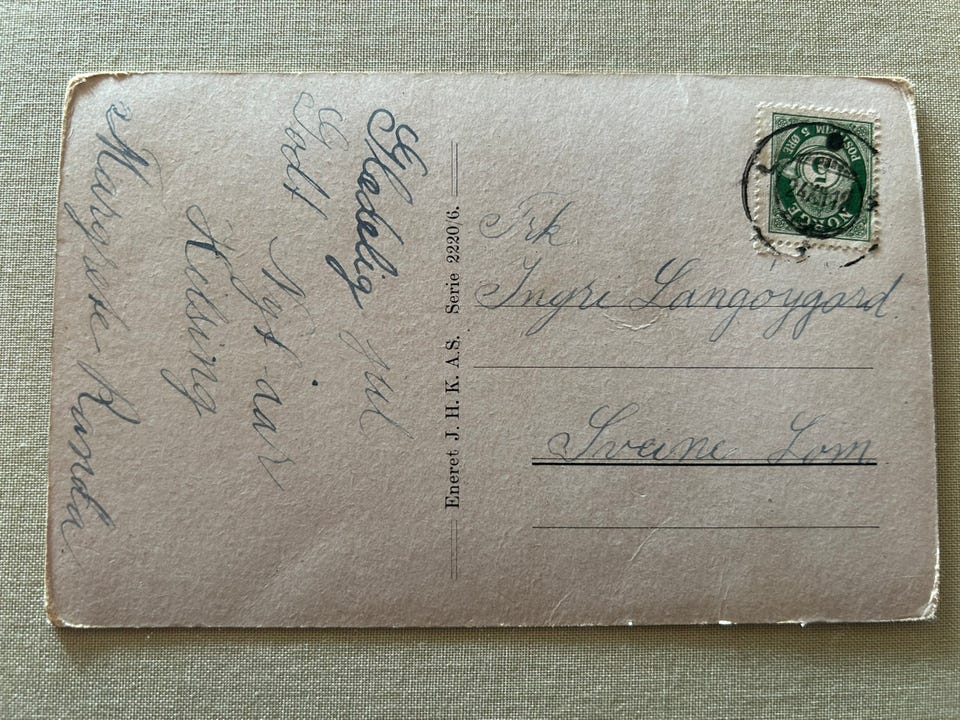 Glædelig Jul
Godt
Nyt-aar
Hilsing
Margrete Runda
Eneret J. H. K. A.S. Serie 2220/6.
NORGE
5
POSTFRIM 5 ØRE
Frk
Ingre Langøygard.
Sveine Lom